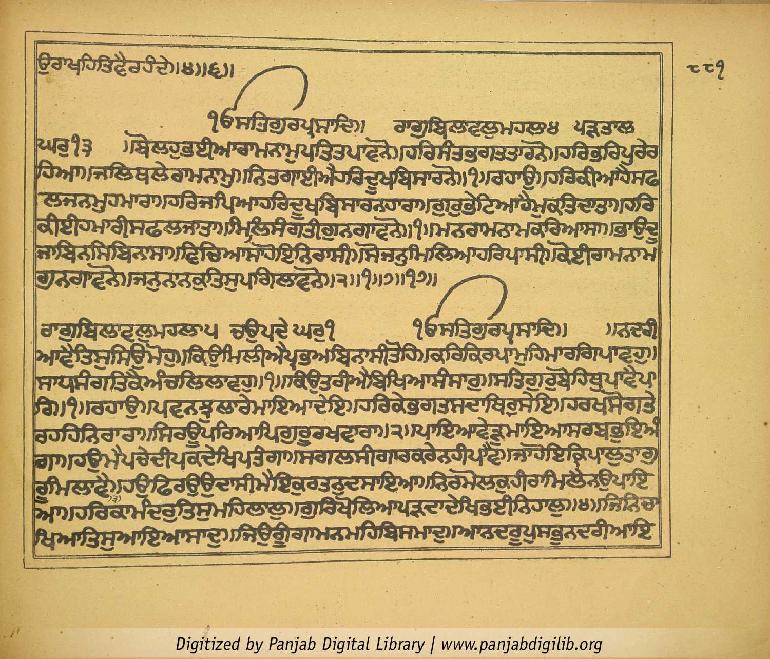 ਉਰਾਖਹਿਤਿਵੈਰਹੰਦੇ॥੪॥੬॥
੮੮੧
ੴਸਤਿਗੁਰਪ੍ਰਸਾਦਿ॥ ਰਾਗੁਬਿਲਾਵਲੁਮਹਲਾ੪ ਪੜਤਾਲ
ਘਰੁ੧੩ ॥ਬੋਲਹੁਭਈਆਰਾਮਨਾਮੁਪਤਿਤਪਾਵਨੋ॥ਹਰਿਸੰਤਭਗਤਤਾਰਨੋ॥ਹਰਿਭਰਿਪੁਰੇਰ
ਹਿਆ॥ਜਲਿਥਲੇਰਾਮਨਾਮੁ॥ਨਿਤਗਾਈਐਹਰਿਦੂਖਬਿਸਾਰਨੋ॥੧॥ਰਹਾਉ॥ਹਰਿਕੀਆਹੈਸਫ
ਲਜਨਮੁਹਮਾਰਾ॥ਹਰਿਜਪਿਆਹਰਿਦੂਖਬਿਸਾਰਨਹਾਰਾ॥ਗੁਰੁਭੇਟਿਆਹੈਮੁਕਤਿਦਾਤਾ॥ਹਰਿ
ਕੀਈਹਮਾਰੀਸਫਲਜਾਤਾ॥ਮਿਲਿਸੰਗਤੀਗੁਨਗਾਵਨੋ॥੧॥ਮਨਰਾਮਨਾਮਕਰਿਆਸਾ॥ਭਾਉਦੂ
ਜਾਬਿਨਸਿਬਿਨਾਸਾ॥ਵਿਚਿਆਸਾਹੋਇਨਿਰਾਸੀ॥ਸੋਜਨੁਮਿਲਿਆਹਰਿਪਾਸੀ॥ਕੋਈਰਾਮਨਾਮ
ਗੁਨਗਾਵਨੋ॥ਜਨੁਨਾਨਕੁਤਿਸੁਪਗਿਲਾਵਨੋ॥੨॥੧॥੭॥੧੭॥
ਰਾਗੁਬਿਲਾਵਲੁਮਹਲਾ੫ ਚਉਪਦੇ ਘਰੁ੧ ੴਸਤਿਗੁਰਪ੍ਰਸਾਦਿ॥ ॥ਨਦਰੀ
ਆਵੈਤਿਸੁਸਿਉਮੋਹੁ॥ਕਿਉਮਿਲੀਐਪ੍ਰਭਅਬਿਨਾਸੀਤੋਹਿ॥ਕਰਿਕਿਰਪਾਮੁਹਿਮਾਰਗਿਪਾਵਹੁ॥
ਸਾਧਸੰਗਤਿਕੈਅੰਚਲਿਲਾਵਹੁ॥੧॥ਕਿਉਤਰੀਐਬਿਖਿਆਸੰਸਾਰੁ॥ਸਤਿਗੁਰੁਬੋਹਿਥੁਪਾਵੈਪਾ
ਰਿ॥੧॥ਰਹਾਉ॥ਪਵਨਝੁਲਾਰੇਮਾਇਆਦੇਇ॥ਹਰਿਕੇਭਗਤਸਦਾਥਿਰੁਸੇਇ॥ਹਰਖਸੋਗਤੇ
ਰਹਹਿਨਿਰਾਰਾ॥ਸਿਰਊਪਰਿਆਪਿਗੁਰੂਰਖਵਾਰਾ॥੨॥ਪਾਇਆਵੇੜੁਮਾਇਆਸਰਬਭੁਇਅੰ
ਗਾ॥ਹਉਮੈਪਚੇਦੀਪਕਦੇਖਿਪਤੰਗਾ॥ਸਗਲਸੀਗਾਰਕਰੇਨਹੀਪਾਵੈ॥ਜਾਹੋਇਕ੍ਰਿਪਾਲੁਤਾਗੁ
ਰੂਮਿਲਾਵੈ॥੩॥ਹਉਫਿਰਉਉਦਾਸੀਮੈਇਕੁਰਤਨੁਦਸਾਇਆ॥ਨਿਰਮੋਲਕੁਹੀਰਾਮਿਲੈਨਉਪਾਇ
ਆ॥ਹਰਿਕਾਮੰਦਰੁਤਿਸੁਮਹਿਲਾਲੁ॥ਗੁਰਿਖੋਲਿਆਪੜਦਾਦੇਖਿਭਈਨਿਹਾਲੁ॥੪॥ਜਿਨਿਚਾ
ਖਿਆਤਿਸੁਆਇਆਸਾਦੁ॥ਜਿਉਗੂੰਗਾਮਨਮਹਿਬਿਸਮਾਦੁ॥ਆਨਦਰੂਪੁਸਭੁਨਦਰੀਆਇ
Digitized by Panjab Digital Library | www.panjabdigilib.org